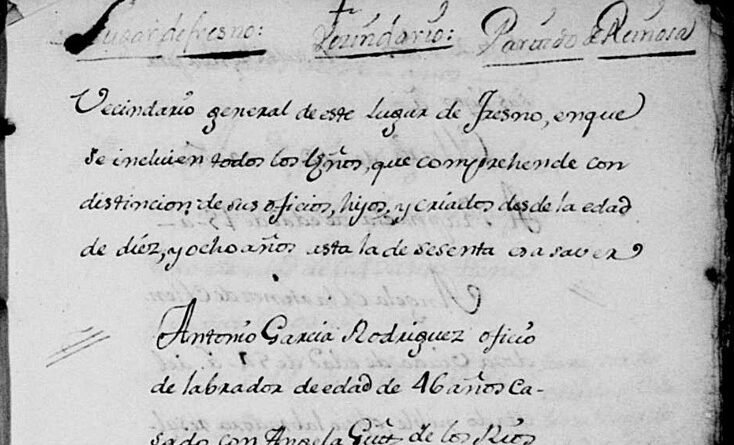 Lugar de fresno: Vecindario: Partido de Reinosa
Vecindario general de este Lugar de Fresno, enque
se incluien todos los Vzños, que comprehende con
distincion, de sus oficios, hijos, y criados desde la edad
de diéz, y ocho años asta la de sesenta es a saver
Antonio Garcia Rodriguez oficio
de labrador de edad de 46 años Ca-
sado con Angela Gutz de los Rios